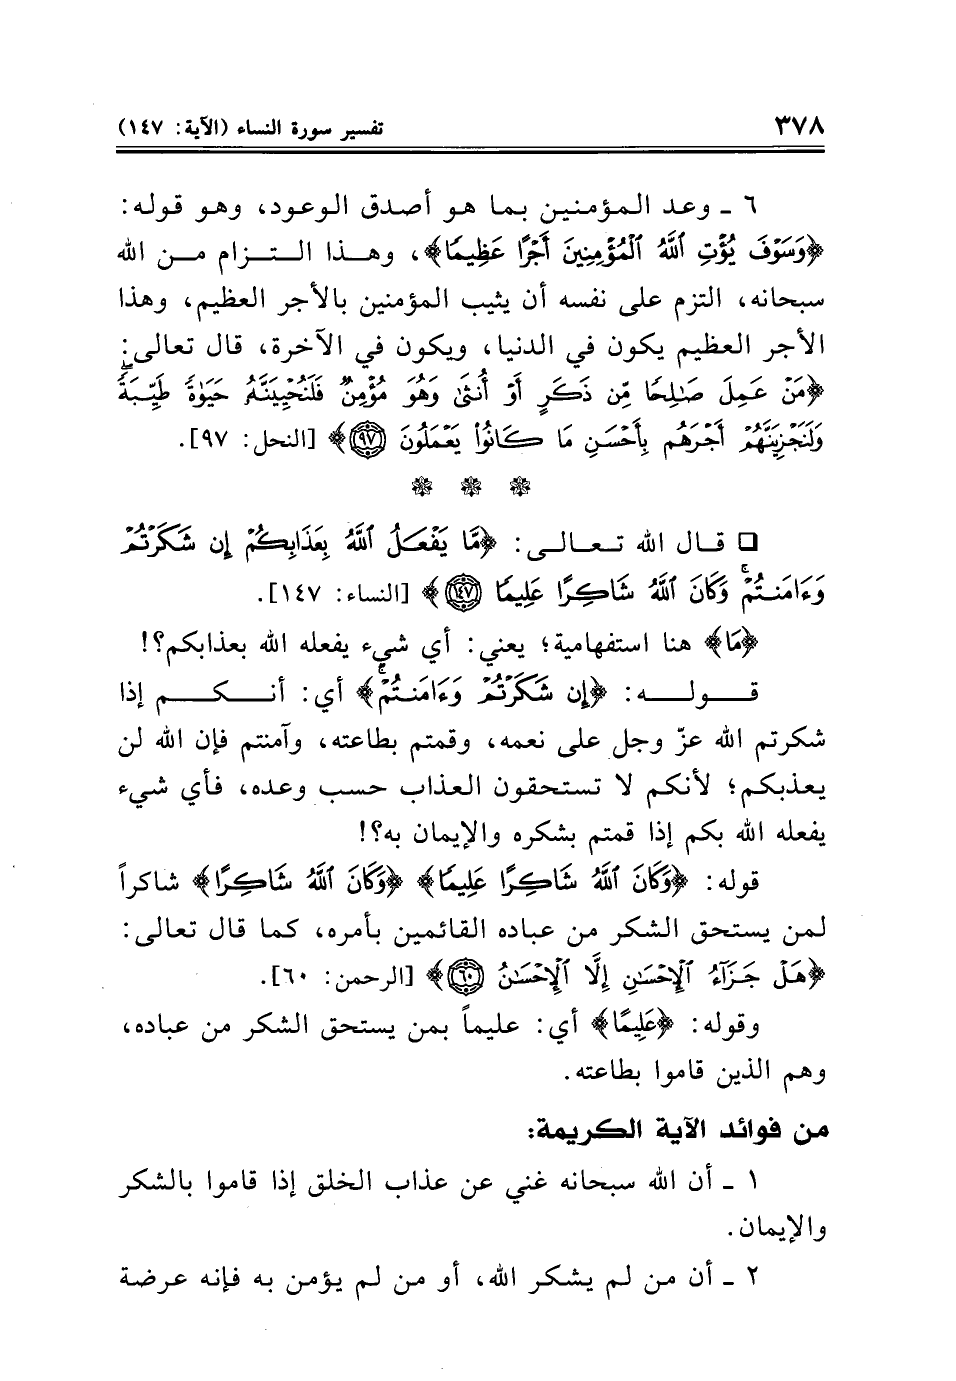 ٣٧٨
تفسير سورة النساء (الآية: ١٤٧)
٦ ـ وعد المؤمنين بما هو أصدق الوعود، وهو قوله:
﴿وَسَوْفَ يُؤْتِ ٱللَّهُ ٱلْمُؤْمِنِينَ أَجْرًا عَظِيمًا﴾، وهـذا الـتـزام مـن الله
سبحانه، التزم على نفسه أن يثيب المؤمنين بالأجر العظيم، وهذا
الأجر العظيم يكون في الدنيا، ويكون في الآخرة، قال تعالى:
﴿مَنْ عَمِلَ صَـٰلِحًا مِّن ذَكَرٍ أَوْ أُنثَىٰ وَهُوَ مُؤْمِنٌ فَلَنُحْيِيَنَّهُۥ حَيَوٰةً طَيِّبَةً
وَلَنَجْزِيَنَّهُمْ أَجْرَهُم بِأَحْسَنِ مَا كَانُوا۟ يَعْمَلُونَ ٩٧﴾ [النحل: ٩٧].
❁ ❁ ❁
❑ قـال الله تـعـالـى: ﴿مَّا يَفْعَلُ ٱللَّهُ بِعَذَابِكُمْ إِن شَكَرْتُمْ
وَءَامَنتُمْ ۚ وَكَانَ ٱللَّهُ شَاكِرًا عَلِيمًا ١٤٧﴾ [النساء: ١٤٧].
﴿مَا﴾ هنا استفهامية؛ يعني: أي شيء يفعله الله بعذابكم؟!
قـولـه: ﴿إِن شَكَرْتُمْ وَءَامَنتُمْ ۚ﴾ أي: أنـكـم إذا
شكرتم الله عزّ وجل على نعمه، وقمتم بطاعته، وآمنتم فإن الله لن
يعذبكم؛ لأنكم لا تستحقون العذاب حسب وعده، فأي شيء
يفعله الله بكم إذا قمتم بشكره والإيمان به؟!
قوله: ﴿وَكَانَ ٱللَّهُ شَاكِرًا عَلِيمًا﴾ ﴿وَكَانَ ٱللَّهُ شَاكِرًا﴾ شاكراً
لمن يستحق الشكر من عباده القائمين بأمره، كما قال تعالى:
﴿هَلْ جَزَآءُ ٱلْإِحْسَـٰنِ إِلَّا ٱلْإِحْسَـٰنُ ٦٠﴾ [الرحمن: ٦٠].
وقوله: ﴿عَلِيمًا﴾ أي: عليماً بمن يستحق الشكر من عباده،
وهم الذين قاموا بطاعته.
من فوائد الآية الكريمة:
١ ـ أن الله سبحانه غني عن عذاب الخلق إذا قاموا بالشكر
والإيمان.
٢ ـ أن من لم يشكر الله، أو من لم يؤمن به فإنه عرضة